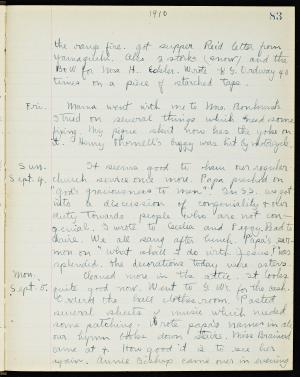 1910
83
the range fire. got supper. Read letter from
Yamaguchi. Also 2 storks (snow) and the
Box for Mrs H. Wrote "K. G. Ordway" 40
times on a piece of starched tape.
Fri.
Mama went with me to Mrs.
on several things which need some
fixing. My pique skirt now has the yoke on
it. Henry buggy was hit by motorcycle.
Sun.
It seems good to have our regular
Sept. 4.
church service once more. Papa preached on
"God's graciousness to men". In S.S. we got
into a discussion of congeniality & our
duty towards people who are not con-
genial. I wrote to Cecelia and Peggy. Had to
We all sang after lunch. Papa's ser-
mon on "What shall I do with Jesus" was
splendid. The decorations today were asters
Mon.
Cleaned more in the attic. It looks
Sept. 5.
quite good now. Went to G. W. for the cash.
the hall clothes room. Pasted
several sheets of music which needed
some patching. Wrote papa's name in all
our hymn books down stairs. Miss Brainard
came at 4. How good it is to see her
again. Annie Bishop came over in evening